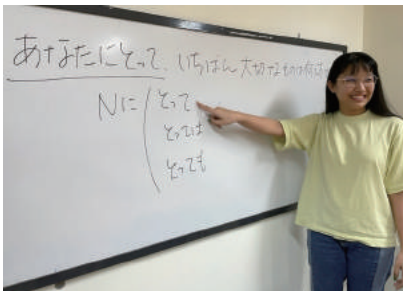 あなたにとって、いちばん大切なものは何ですか
Nに とって
とっては
とっても